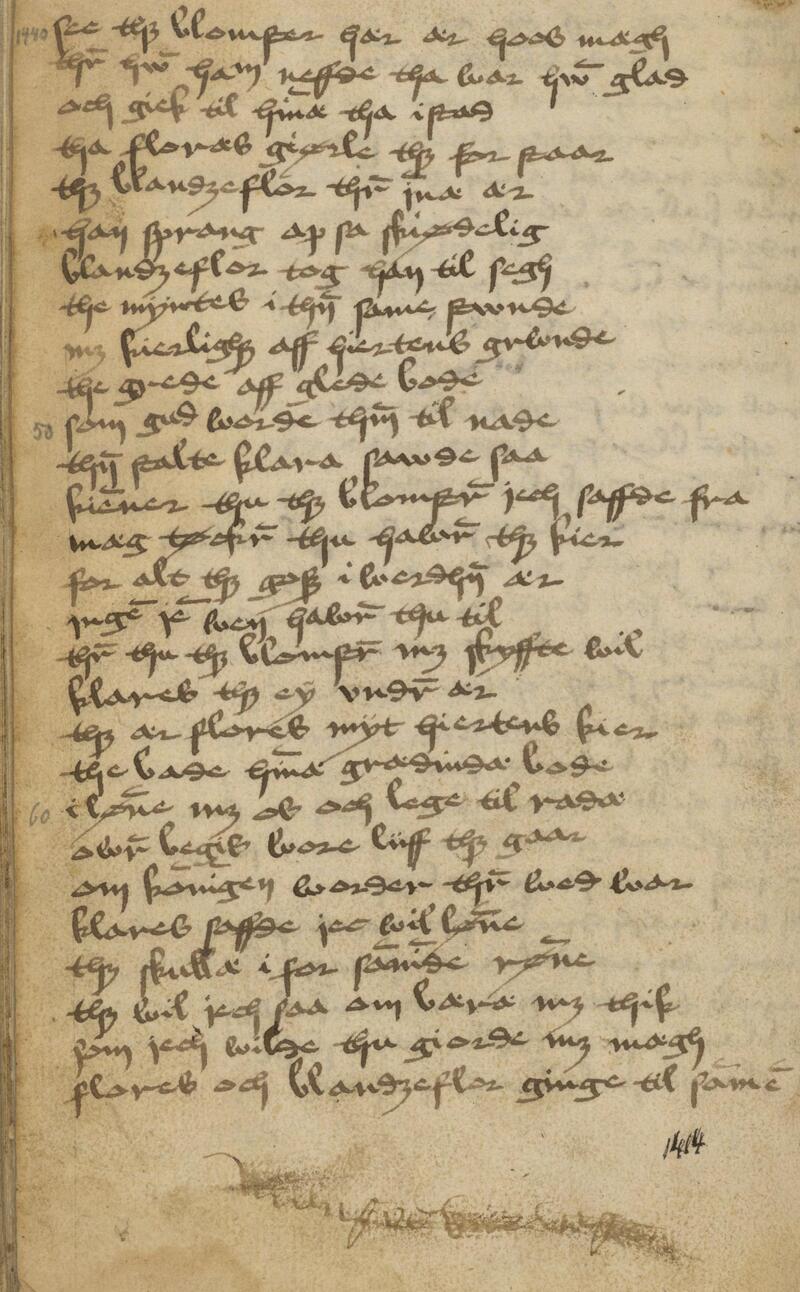 1440 see thꝫ blomster hær ær hoos mægh
thr̄ hw̄ ham neffde tha war hw̄ glad
och giek til hin̄æ tha i stad
tha floræs giørle thꝫ for staar
thꝫ blandzeflor thr̄ jnæ ær
han sprang ap sa skiødelig
blandzeflor tog han til segh
the myntes i thn̄ same stwnde
mꝫ kierlighꝫ aff hiertens grwnde
the grede aff glede bode
50 som gud worde thm̄ til nade
thn̄ stalte klara sawde saa
kiēner thu thꝫ blomstr̄ jech saffde fra
mæg tøckr̄ thu hawr̄ thꝫ kier
for alt thꝫ gotz i werdhn̄ ær
ingē jē wen hawr̄ thu til
thr̄ thu thꝫ blomstr̄ mꝫ skyffte wil
klares thꝫ ey vndr̄ ær
thꝫ ær flores myt hiertens kier
the bade hin̄æ grædindæ bode
60 i løn̄e mꝫ os och lege til radæ
owr̄ begis wore liiff thꝫ gaar
om kōnīgen worder thr̄ wed war
klares saffde jec wil løn̄e
thꝫ skullæ i for sām̄de røn̄e
thꝫ wil jech saa om bæræ mꝫ thik
som jech wilde thu giorde mꝫ mægh
flores och blandzeflor ginge til sām̄ē
1414